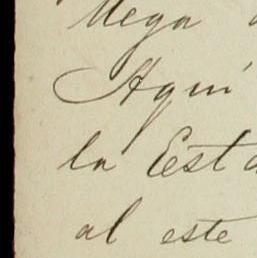 llega
Aquí
la Est
al este